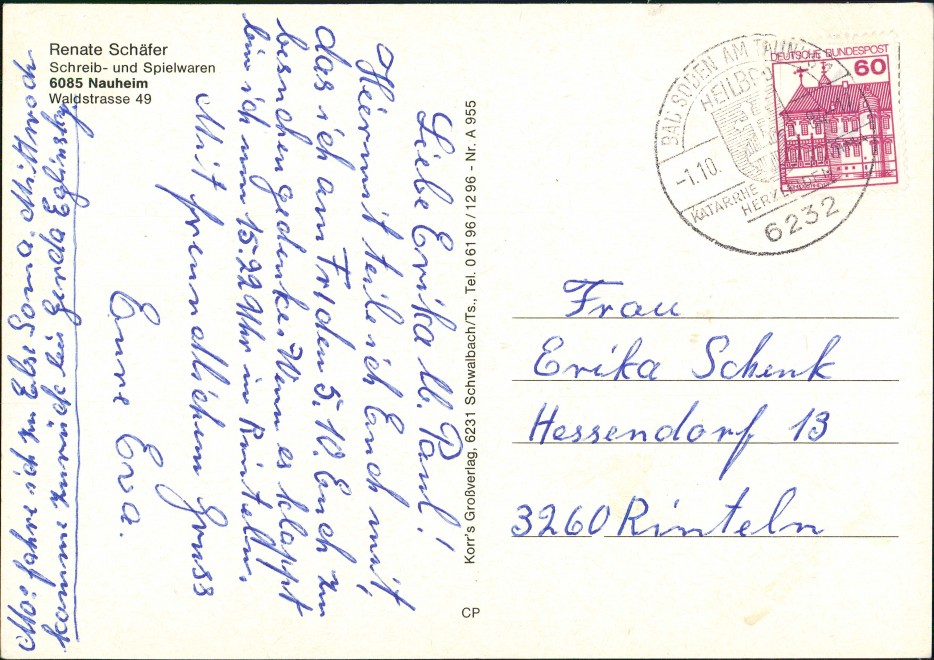 Renate Schäfer
Schreib- und Spielwaren
6085 Nauheim
Waldstrasse 49
Liebe Erika u. Paul!
Hiermit teile ich Euch mit,
das ich am Fr. den 5.10. Euch zu
besuchen gedenke. Wenn es klappt
bin ich um 15.22 Uhr in Rinteln.
Mit freundlichem Gruss
Eure Eva.
Mo: fahre ich zu Else Mittwoch
komme zurück bei Gerda
Korr's Großverlag, 6231 Schwalbach/Ts., Tel. 06196/1296 - Nr. A 955
CP
BAD SODEN AM TAUNUS
HEILBAD
-1.10.
KATARRHE
6232
DEUTSCHE BUNDESPOST
60
Frau
Erika Schenk
Hessendorf 13
3260 Rinteln